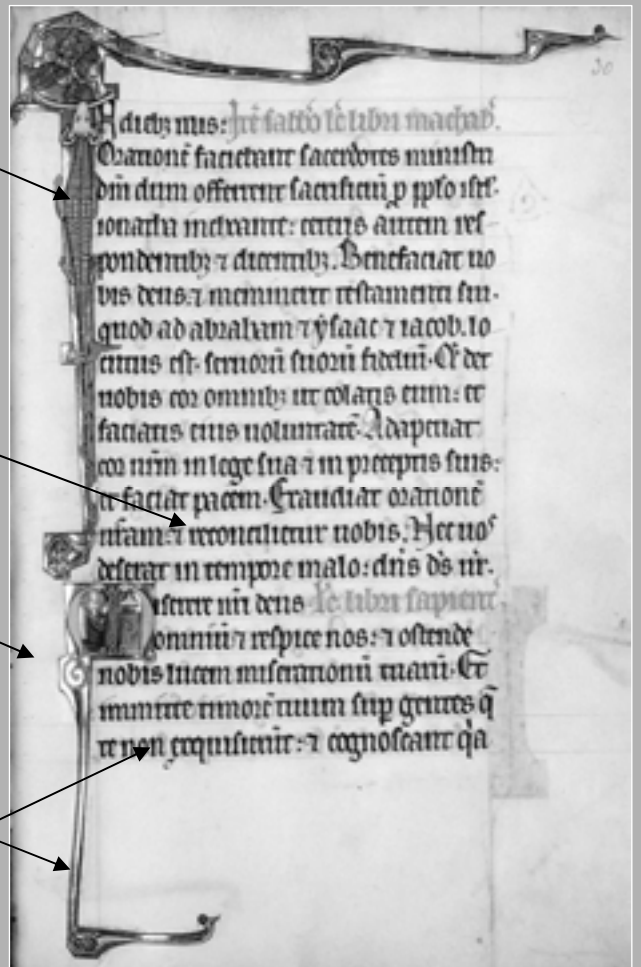 30
diebȝ nr̄is: Itē sabbō lc̄ libri machab.
Orationē faciebant sacerdotes ministri
dn̄i dum offerrent sacrificiū p ppl̄o isrl̄.
ionatha inchoante: ceteris autem res
pondentibȝ ⁊ dicentibȝ. Benefaciat uo
bis deus: ⁊ meminerit testamenti sui.
quod ad abraham ⁊ ysaac ⁊ iacob. lo
cutus est. seruorū suorū fideliū. Et det
uobis cor omnibȝ ut colatis eum: et
faciatis eius uoluntatē. Adaperiat
cor ur̄m in lege sua ⁊ in preceptis suis:
et faciat pacem. Exaudiat orationē
ur̄am: ⁊ reconcilietur uobis. Nec uos
deserat in tempore malo: dn̄s ds̄ ur̄.
iserere nr̄i deus lc̄ libri sapient̄
omniū ⁊ respice nos: ⁊ ostende
nobis lucem miserationū tuarū. Et
immitte timorē tuum sup gentes q̄
te non exquisierūt: ⁊ cognoscant q̄a